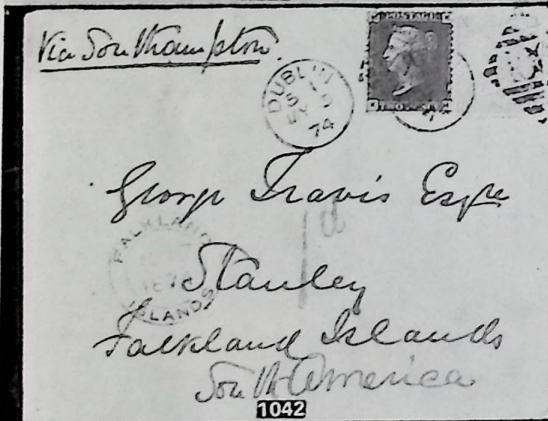 Via Southampton.
POSTAGE
DUBLIN
5
MY 5
74
George Travis Esqre
1d
FALKLAND
ISLANDS
Stanley
Falkland Islands
South America
1042